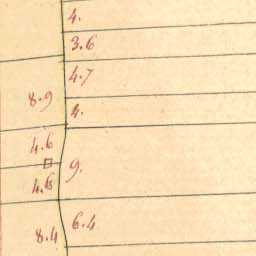 4.
3.6
4.7
8.9
4.
4.6
9.
4.6
6.4
8.4